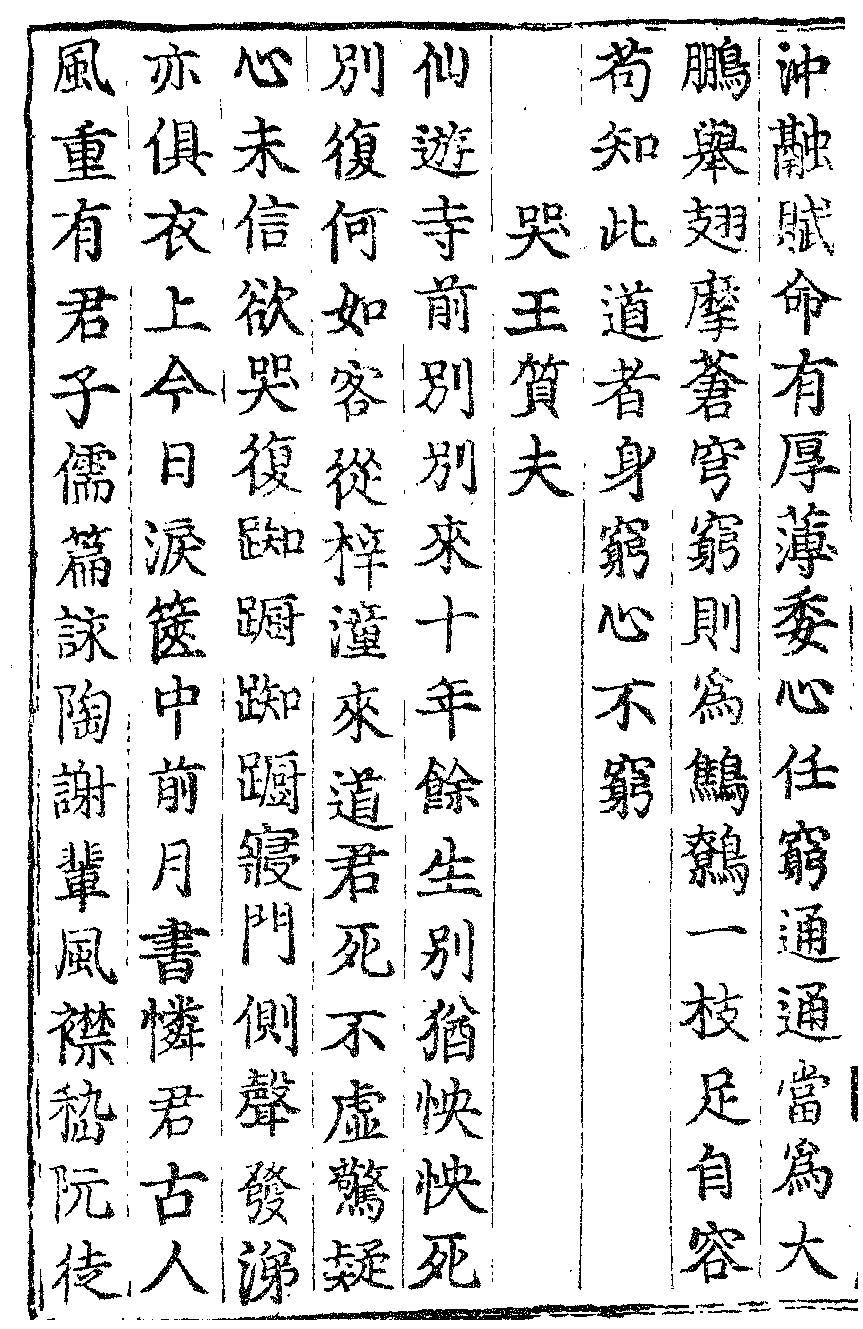 沖融賦命有厚薄委心任窮通通當爲大
鵬舉翅摩蒼穹窮則爲鷦鷯一枝足自容
苟知此道者身窮心不窮
哭王質夫
仙遊寺前別別來十年餘生別猶怏怏死
別復何如客從梓潼來道君死不虛驚疑
心未信欲哭復踟躕踟躕寢門側聲發涕
亦俱衣上今日淚篋中前月書憐君古人
風重有君子儒篇詠陶謝輩風襟嵇阮徒